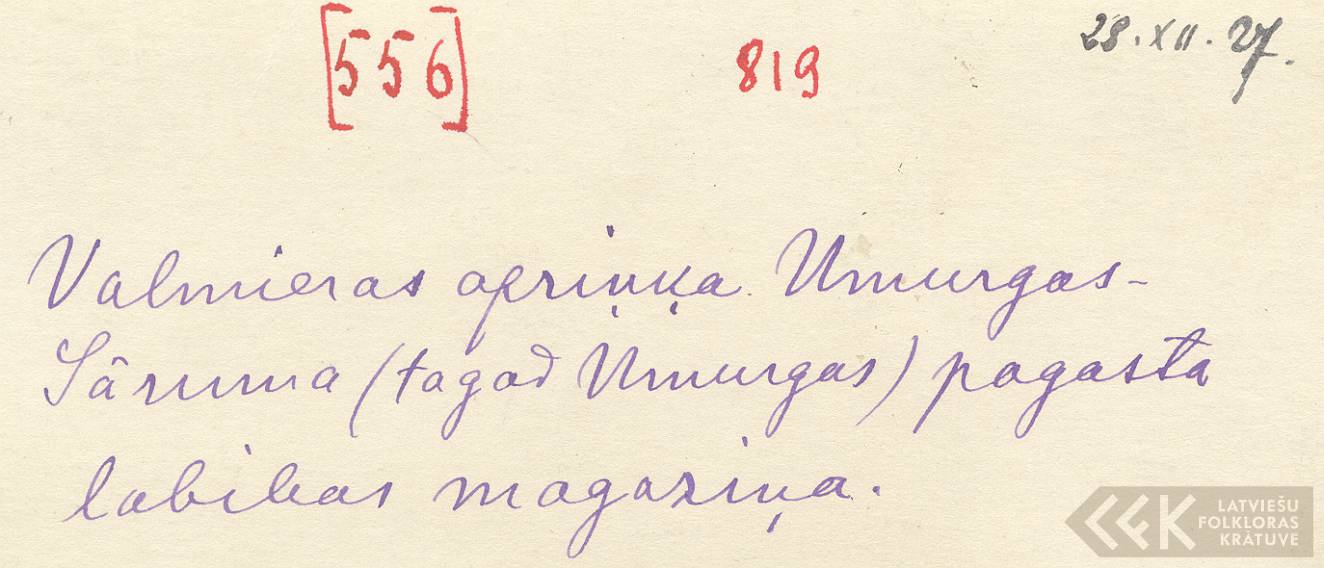 [556] 819 28.XII.27.
Valmieras apriņķa Umurgas-
Sāruma (tagad Umurgas) pagasta
labibas magaziņa.
LATVIEŠU
FOLKLORAS
KRĀTUVE